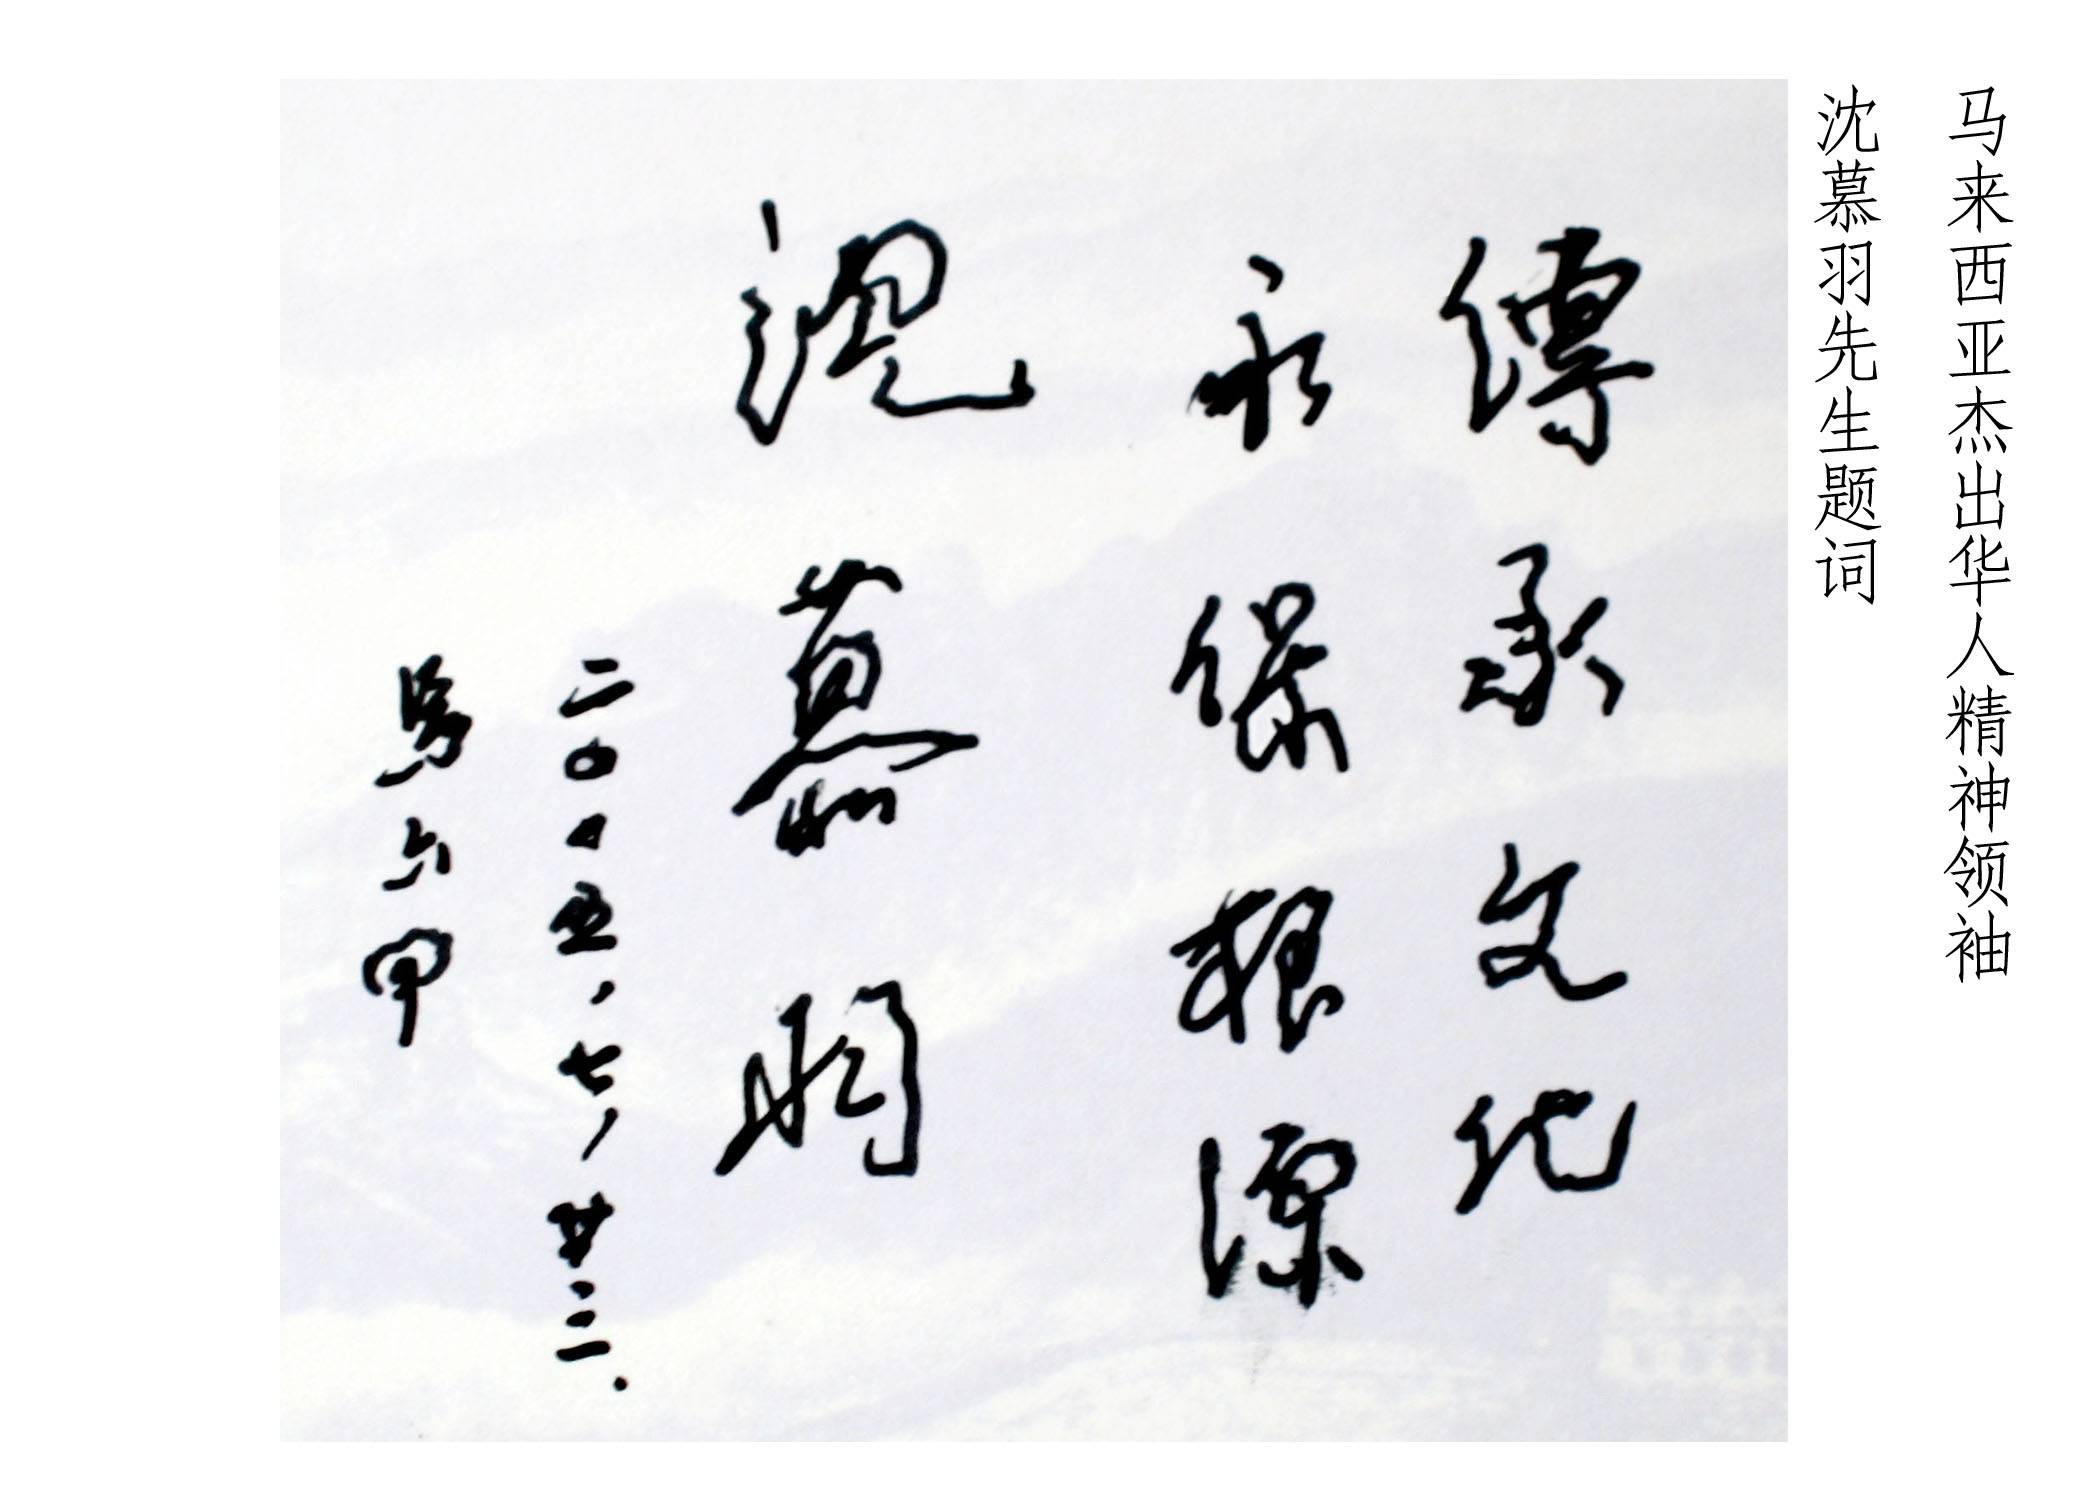 马来西亚杰出华人精神领袖
沈慕羽先生题词
傳承文化
永保根深
沈慕羽
二〇〇五、七、廿三.
馬六甲